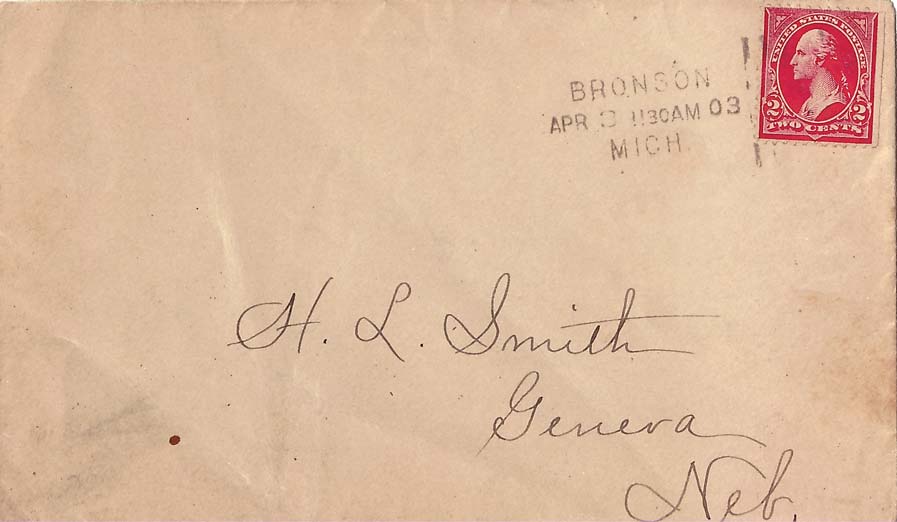 UNITED STATES POSTAGE
2 2
TWO CENTS
BRONSON
APR 3 1130AM 03
MICH.
H. L. Smith
Geneva
Neb.